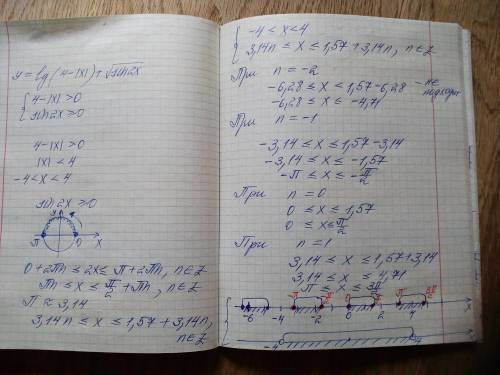 y = lg(4-|x|) + √sin2x
{ 4-|x| > 0
{ sin2x ≥ 0
4-|x| > 0
|x| < 4
-4 < x < 4
sin2x ≥ 0
y
π 0 x
0+2πn ≤ 2x ≤ π+2πn, n∈Z
πn ≤ x ≤ π/2 + πn, n∈Z
π ≈ 3,14
3,14n ≤ x ≤ 1,57+3,14n,
n∈Z
{ -4 < x < 4
{ 3,14n ≤ x ≤ 1,57+3,14n, n∈Z
При n = -2
-6,28 ≤ x ≤ 1,57-6,28 - не
подходит
-6,28 ≤ x ≤ -4,71
При n = -1
-3,14 ≤ x ≤ 1,57-3,14
-3,14 ≤ x ≤ -1,57
-π ≤ x ≤ -π/2
При n = 0
0 ≤ x ≤ 1,57
0 ≤ x ≤ π/2
При n = 1
3,14 ≤ x ≤ 1,57+3,14
3,14 ≤ x ≤ 4,71
π ≤ x ≤ 3π/2
-6 -4 -2 0 2 4 x
-4 4